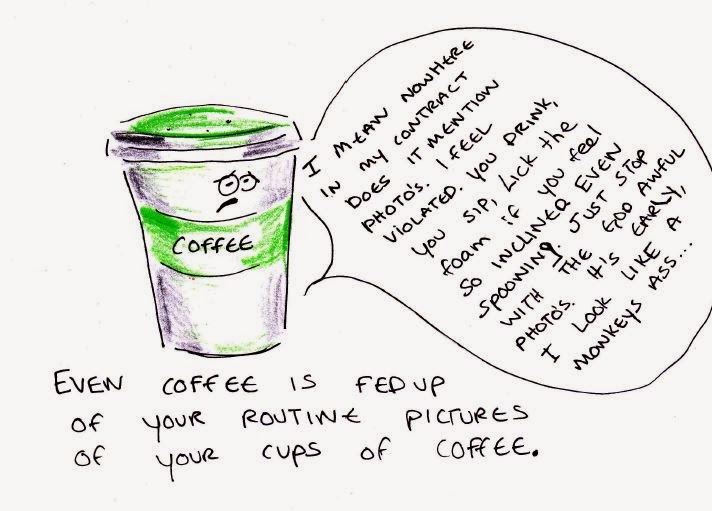 I MEAN NOWHERE
IN MY CONTRACT
DOES IT MENTION
PHOTO'S. I FEEL
VIOLATED. YOU DRINK,
YOU SIP, LICK THE
FOAM IF YOU FEEL
SO INCLINED EVEN
SPOONING. JUST STOP
WITH THE GOD AWFUL
PHOTO'S. IT'S EARLY,
I LOOK LIKE A
MONKEYS ASS...
COFFEE
EVEN COFFEE IS FED UP
OF YOUR ROUTINE PICTURES
OF YOUR CUPS OF COFFEE.